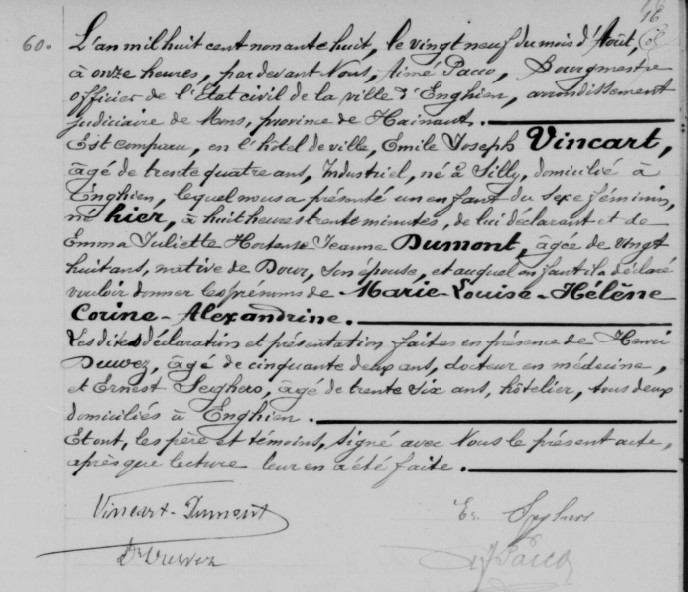 16
60. L'an mil huit cent nonante huit, le vingt neuf du mois d'Août,
à onze heures, par devant Nous, Aimé Pacco, Bourgmestre
officier de l'Etat civil de la ville d'Enghien, arrondissement
judiciaire de Mons, province de Hainaut.
Est comparu, en l'hôtel de ville, Emile Joseph Vincart,
âgé de trente quatre ans, Industriel, né à Silly, domicilié à
Enghien, lequel nous a présenté un enfant du sexe féminin,
né hier, à huit heures trente minutes, de lui déclarant et de
Emma Juliette Hortense Jeanne Dumont, âgée de vingt
huit ans, native de Dour, son épouse, et auquel enfant il a déclaré
vouloir donner les prénoms de Marie-Louise-Hélène
Corine-Alexandrine.
Les dites déclaration et présentation faites en présence de Henri
Duwez, âgé de cinquante deux ans, docteur en médecine,
et Ernest Seghers, âgé de trente six ans, hôtelier, tous deux
domiciliés à Enghien.
Et ont, les père et témoins, signé avec Nous le présent acte,
après que lecture leur en a été faite.
Vincart-Dumont
Er. Seghers
Dr Duwez
Pacco